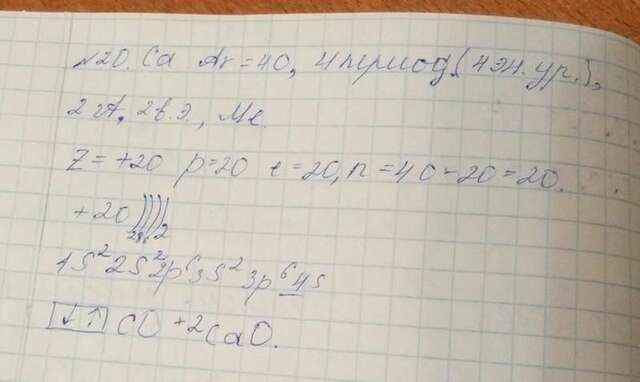 №20. Ca Ar = 40, 4 период (4 эн. ур.),
2 гА, 2 в.э., Ме.
Z = +20 p = 20 e = 20, n = 40 - 20 = 20.
+20 ) ) ) ) 2 8 8 2
1s² 2s² 2p⁶ 3s² 3p⁶ 4s
↓↑ CO +2 CaO.